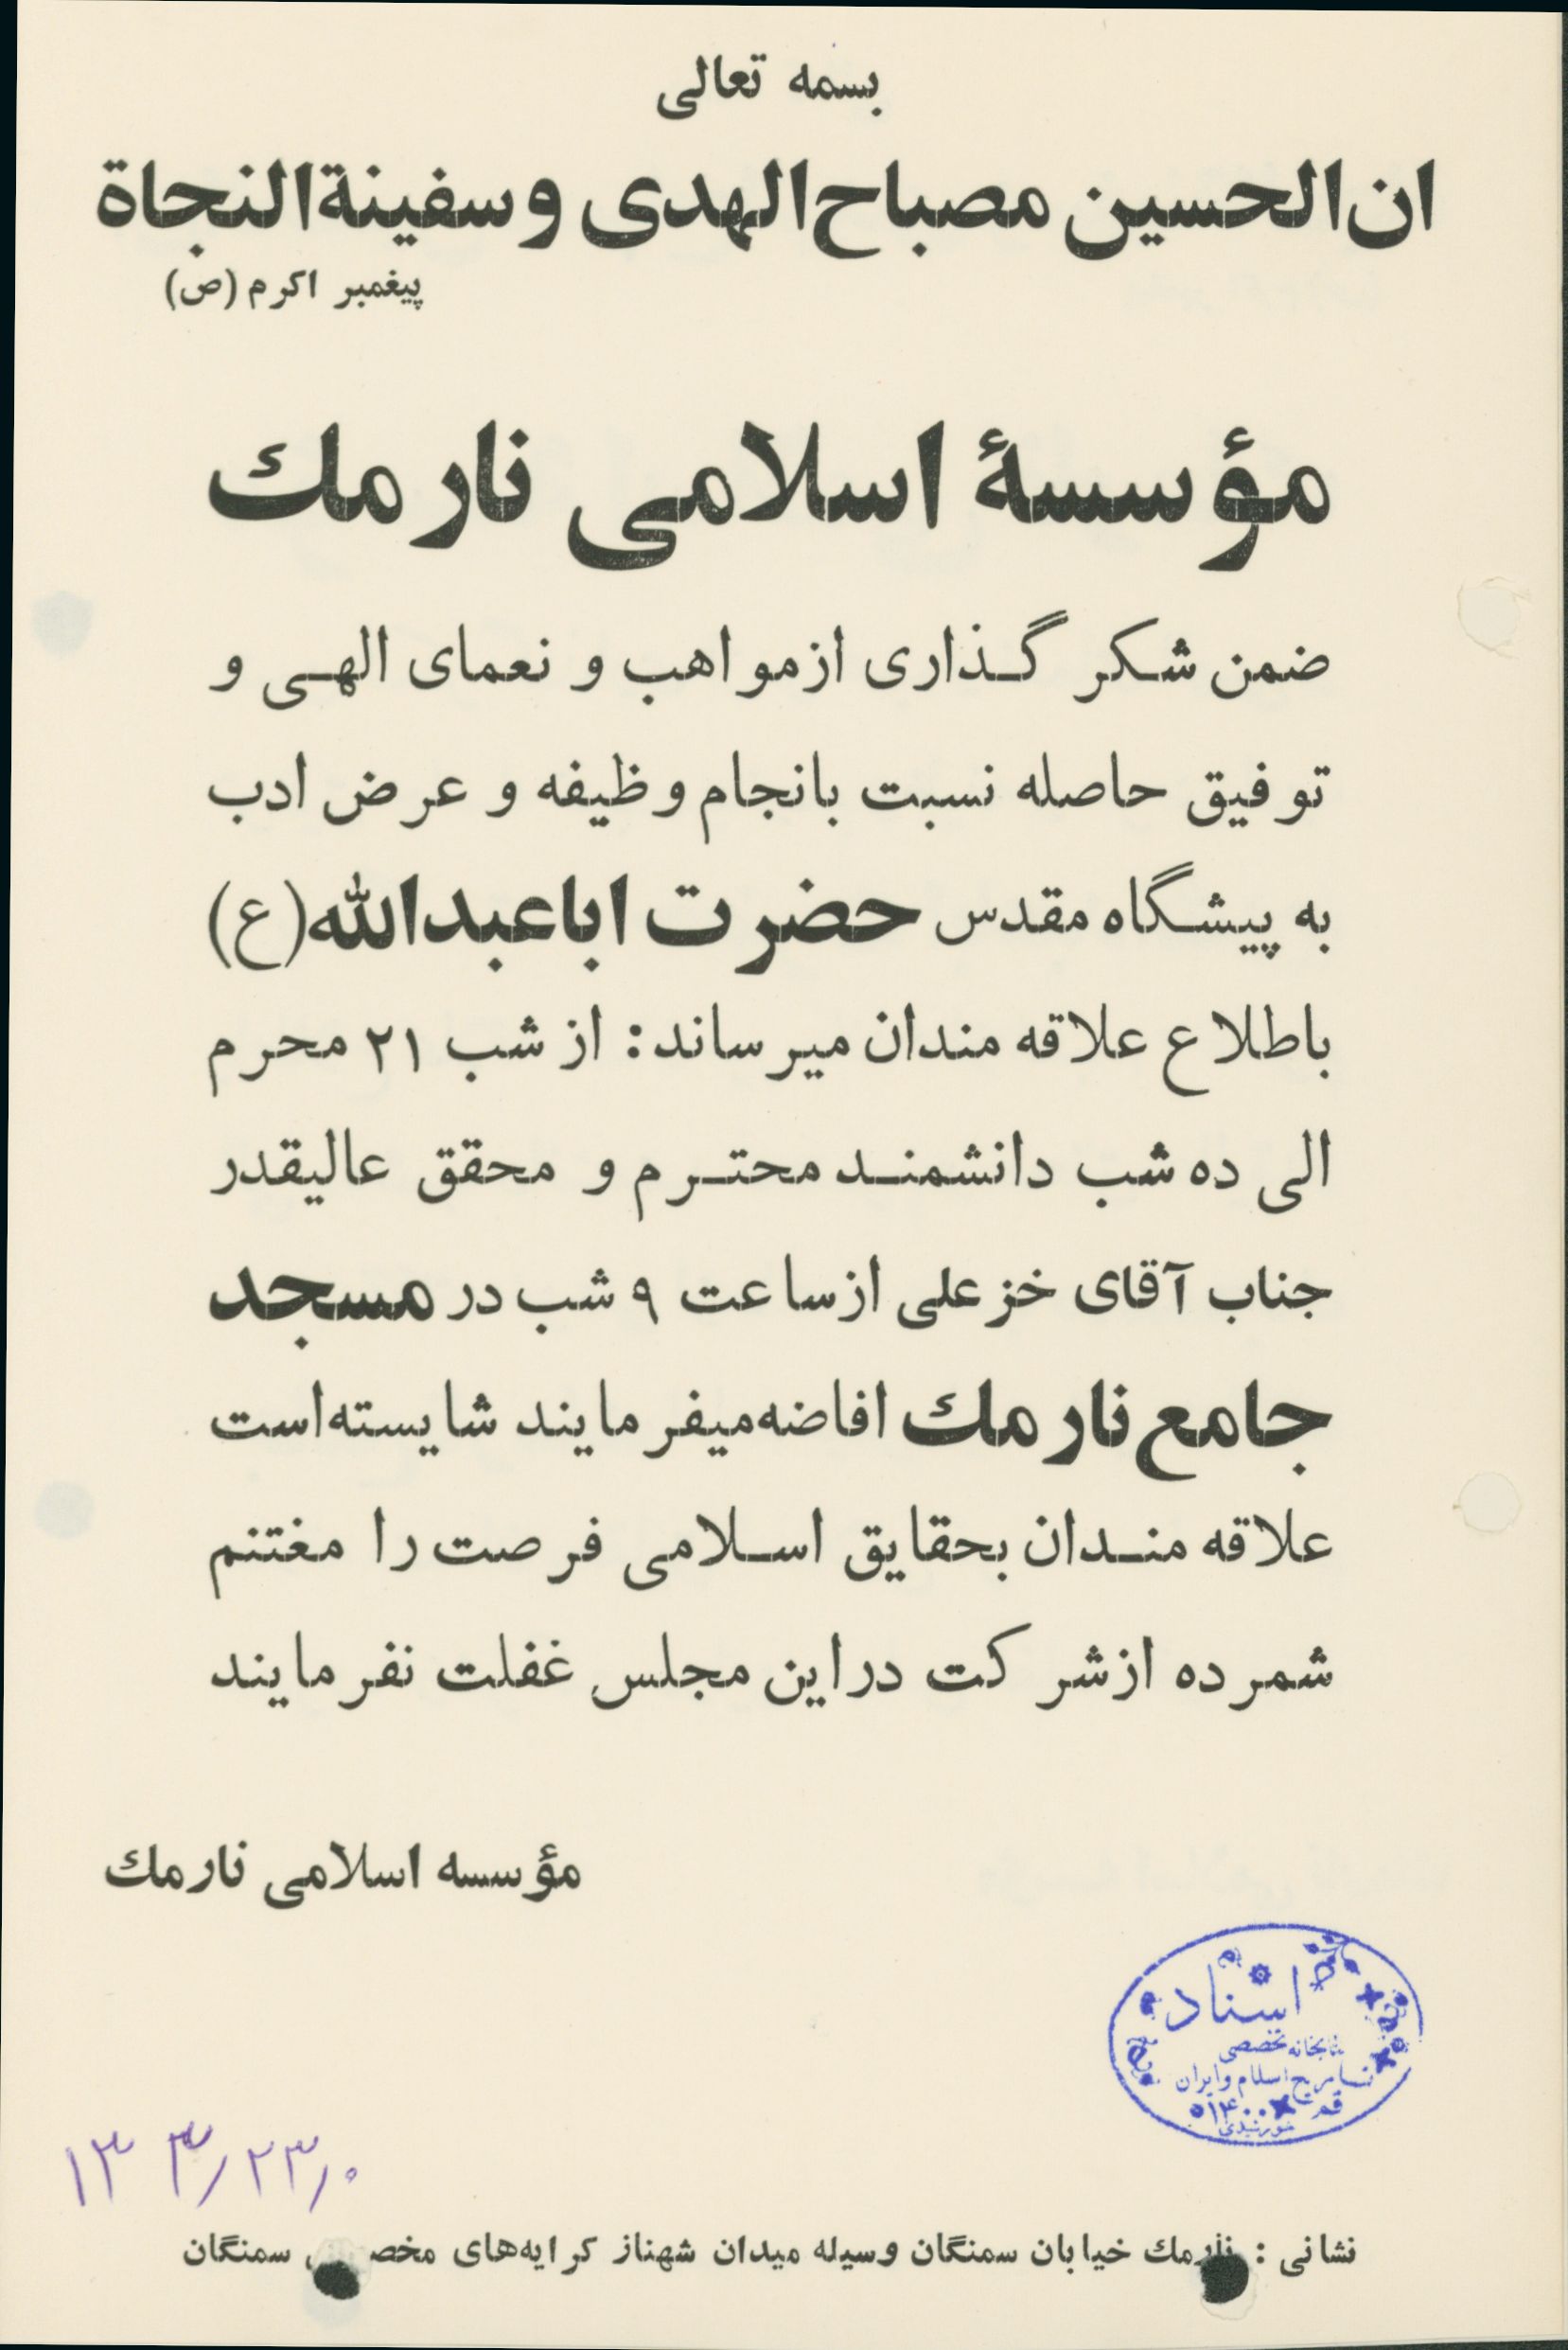 بسمه تعالی
ان الحسین مصباح الهدی و سفینة النجاة
پیغمبر اکرم (ص)
مؤسسهٔ اسلامی نارمك
ضمن شکر گـذاری از مواهب و نعمای الهـی و
توفیق حاصله نسبت بانجام وظیفه و عرض ادب
به پیشـگاه مقدس حضرت اباعبدالله (ع)
باطلاع علاقه مندان میرساند: از شب ۲۱ محرم
الی ده شب دانشمنـد محتـرم و محقق عالیقدر
جناب آقای خزعلی از ساعت ۹ شب در مسجد
جامع نارمك افاضه میفرمایند شایسته است
علاقه منـدان بحقایق اسـلامی فرصت را مغتنم
شمرده از شرکت در این مجلس غفلت نفرمایند
مؤسسه اسلامی نارمك
اسناد
کتابخانه تخصصی
تاریخ اسلام و ایران
قم ۱۴۰۰
خورشیدی
نشانی : نارمك خیابان سمنگان وسیله میدان شهناز کرایه‌های مخصوص سمنگان